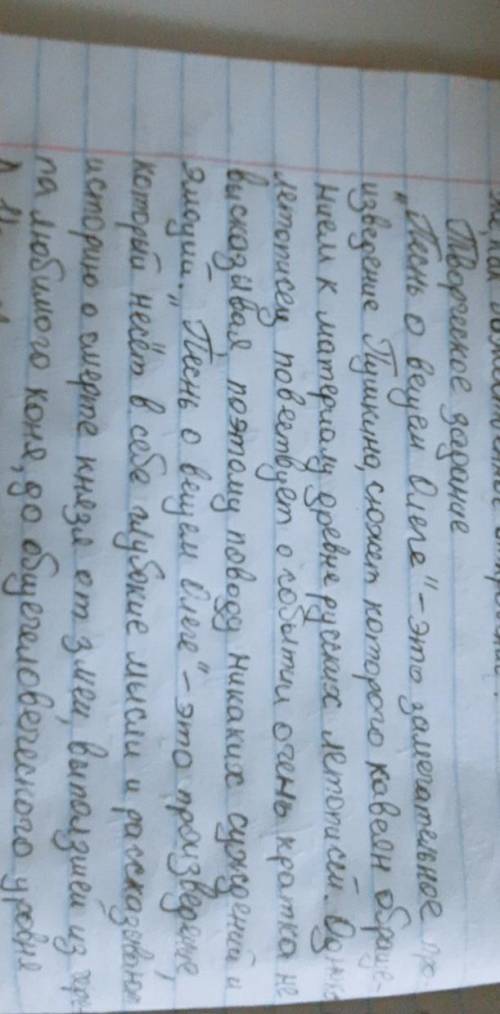 Творческое задание
„Песнь о вещем Олеге" – это замечательное про-
изведение Пушкина, сюжет которого навеян обраще-
нием к материалу древне русских летописей. Однако
летописец повествует о событии очень кратка не
высказывая поэтому поводу никаких суждений и
эмоций. „Песнь о вещем Олеге" – это произведение,
который несёт в себе глубокие мысли и рассказывают
историю о смерте князя от змеи, выползшей из
па любимого коня, до общечеловеческого уровня